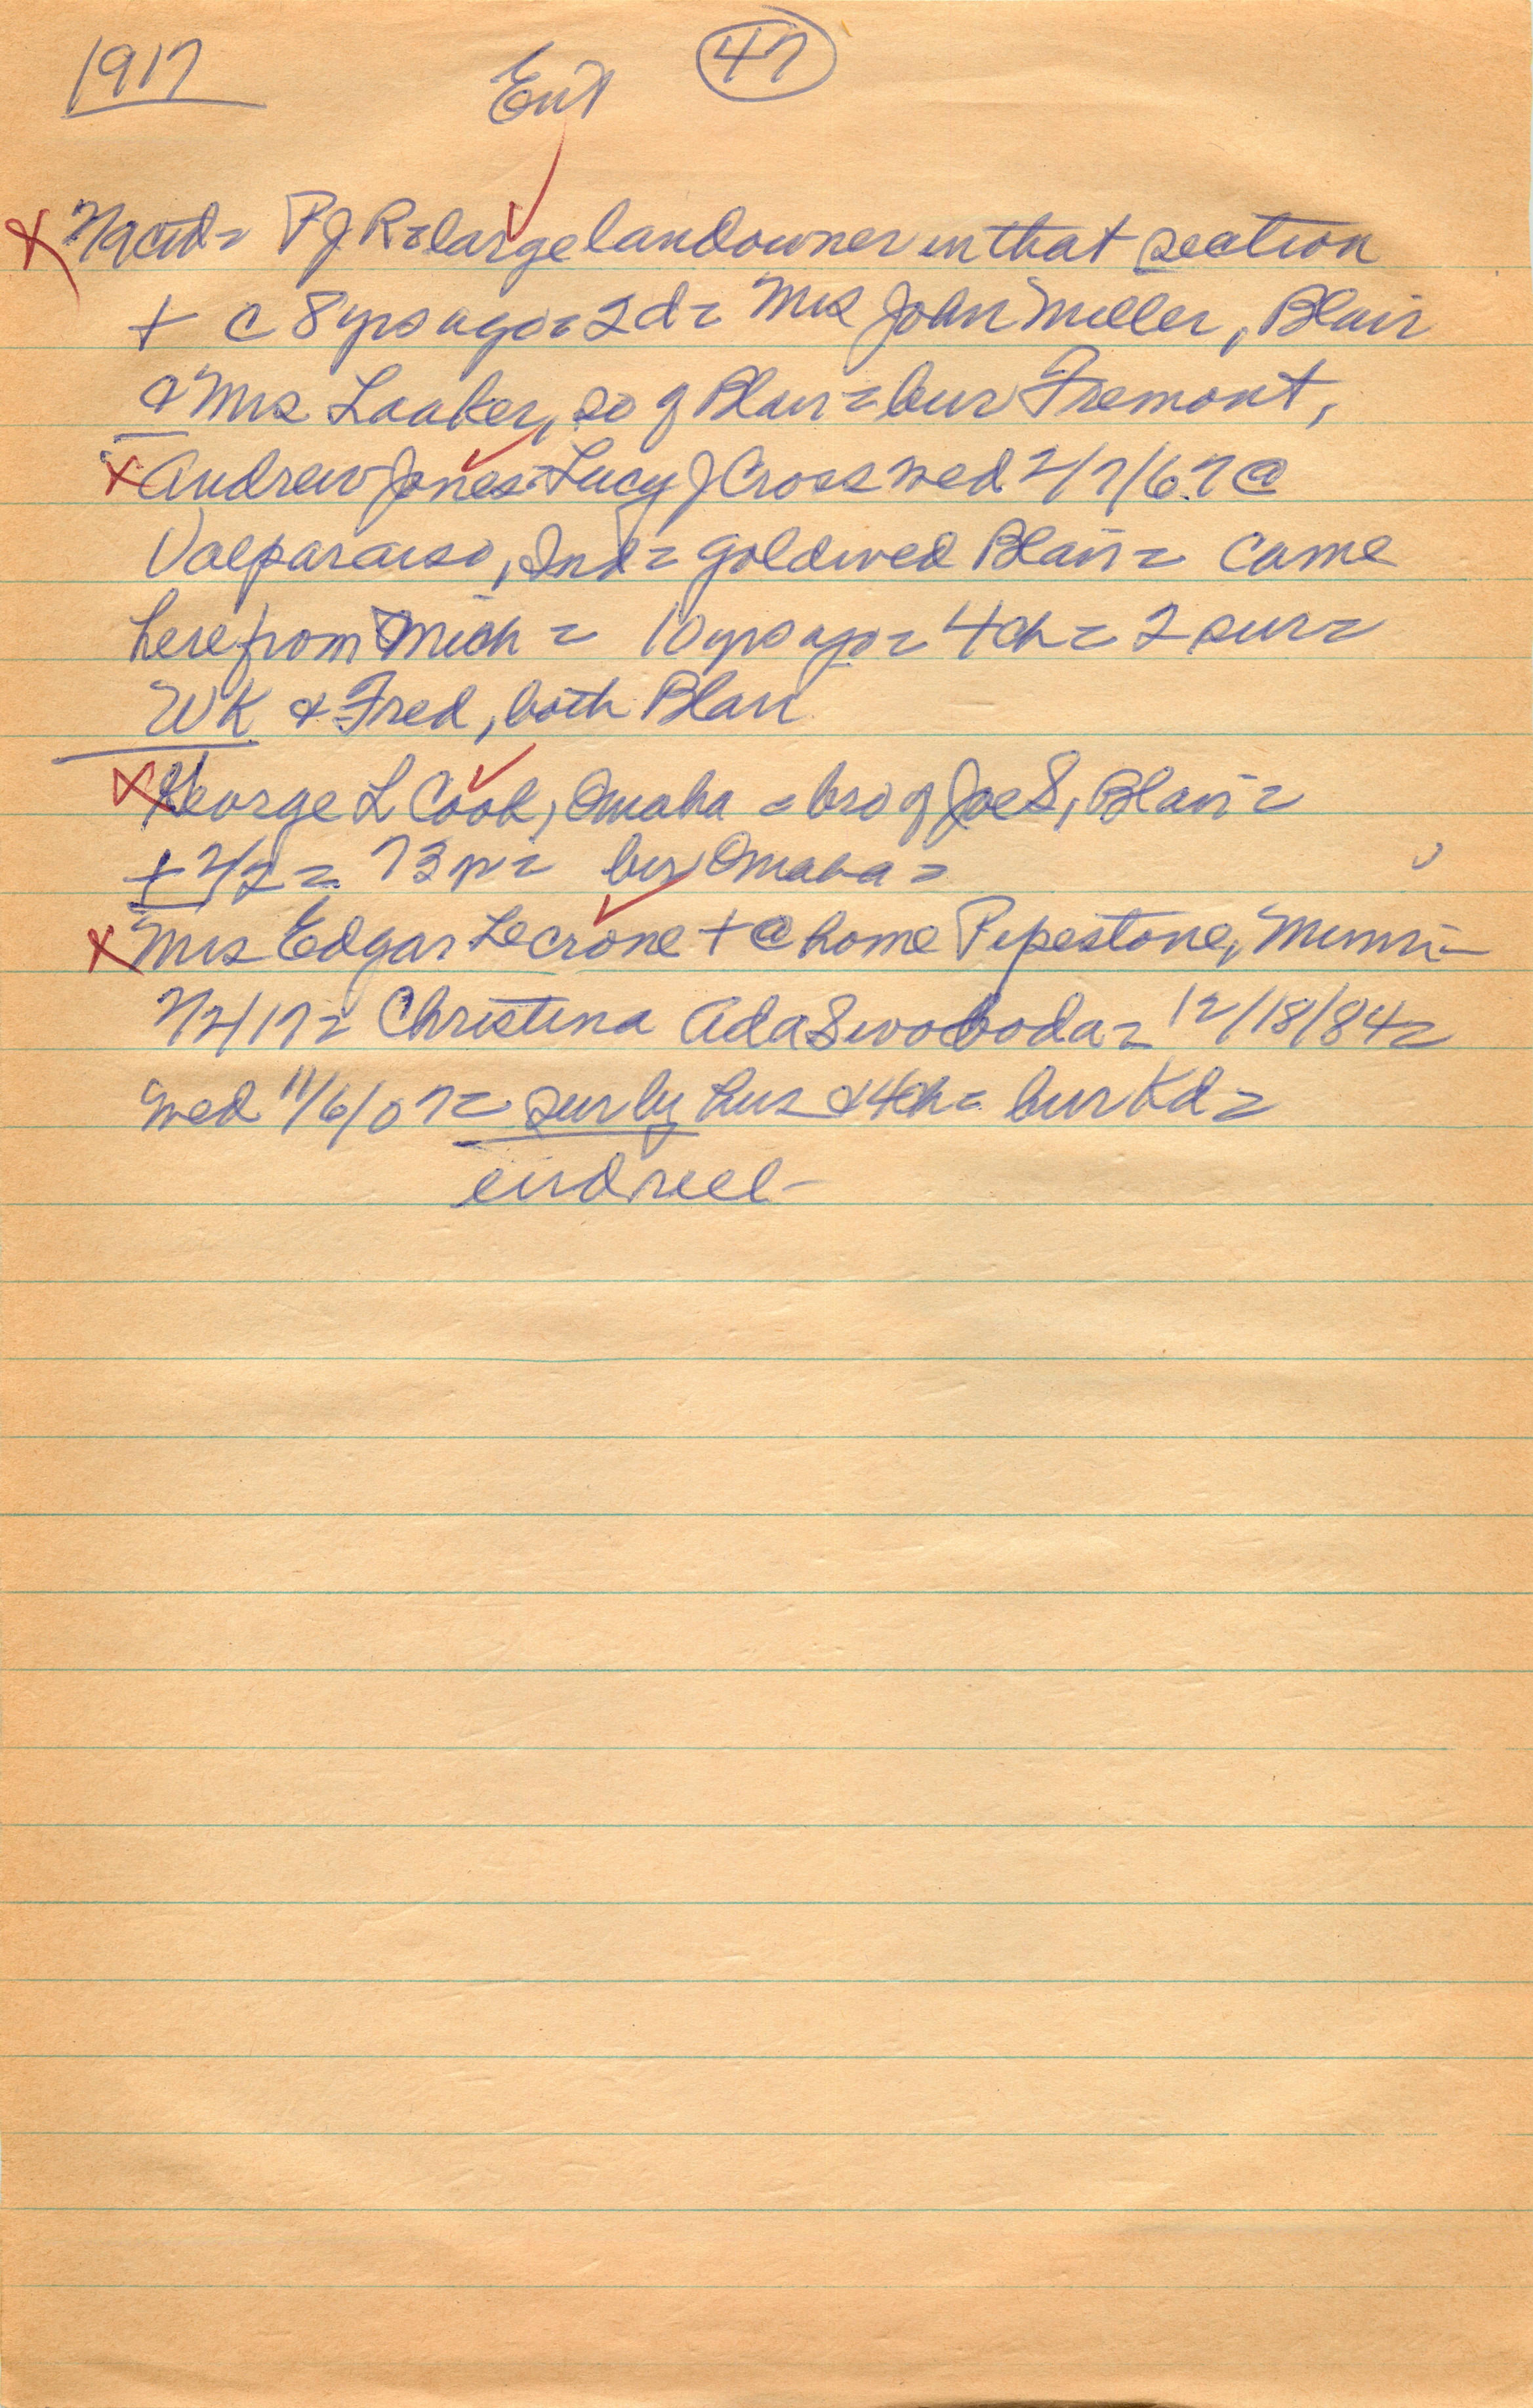 1917 Ent 47
Nacid = P J R = large landowner in that section
+ c 8 yrs ago = 2 d = Mrs John Miller, Blair
& Mrs Laaker, so of Blair = bur Fremont,
Andrew Jones - Lucy J Cross wed 2/7/67 @
Valparaiso, Ind = gold wed Blair = came
here from Mich = 10 yrs ago = 4 ch = 2 sur =
WK & Fred, both Blair
George L Cook, Omaha = bro of Joe S, Blair =
+ 2/2 = 73 = bur Omaha =
Mrs Edgar Lecrone + @ home Pipestone, Minn -
Christina Ada Swoboda = 12/18/84 =
wed 11/6/07 = sur by hus & 4 ch = bur Kd =
end reel -